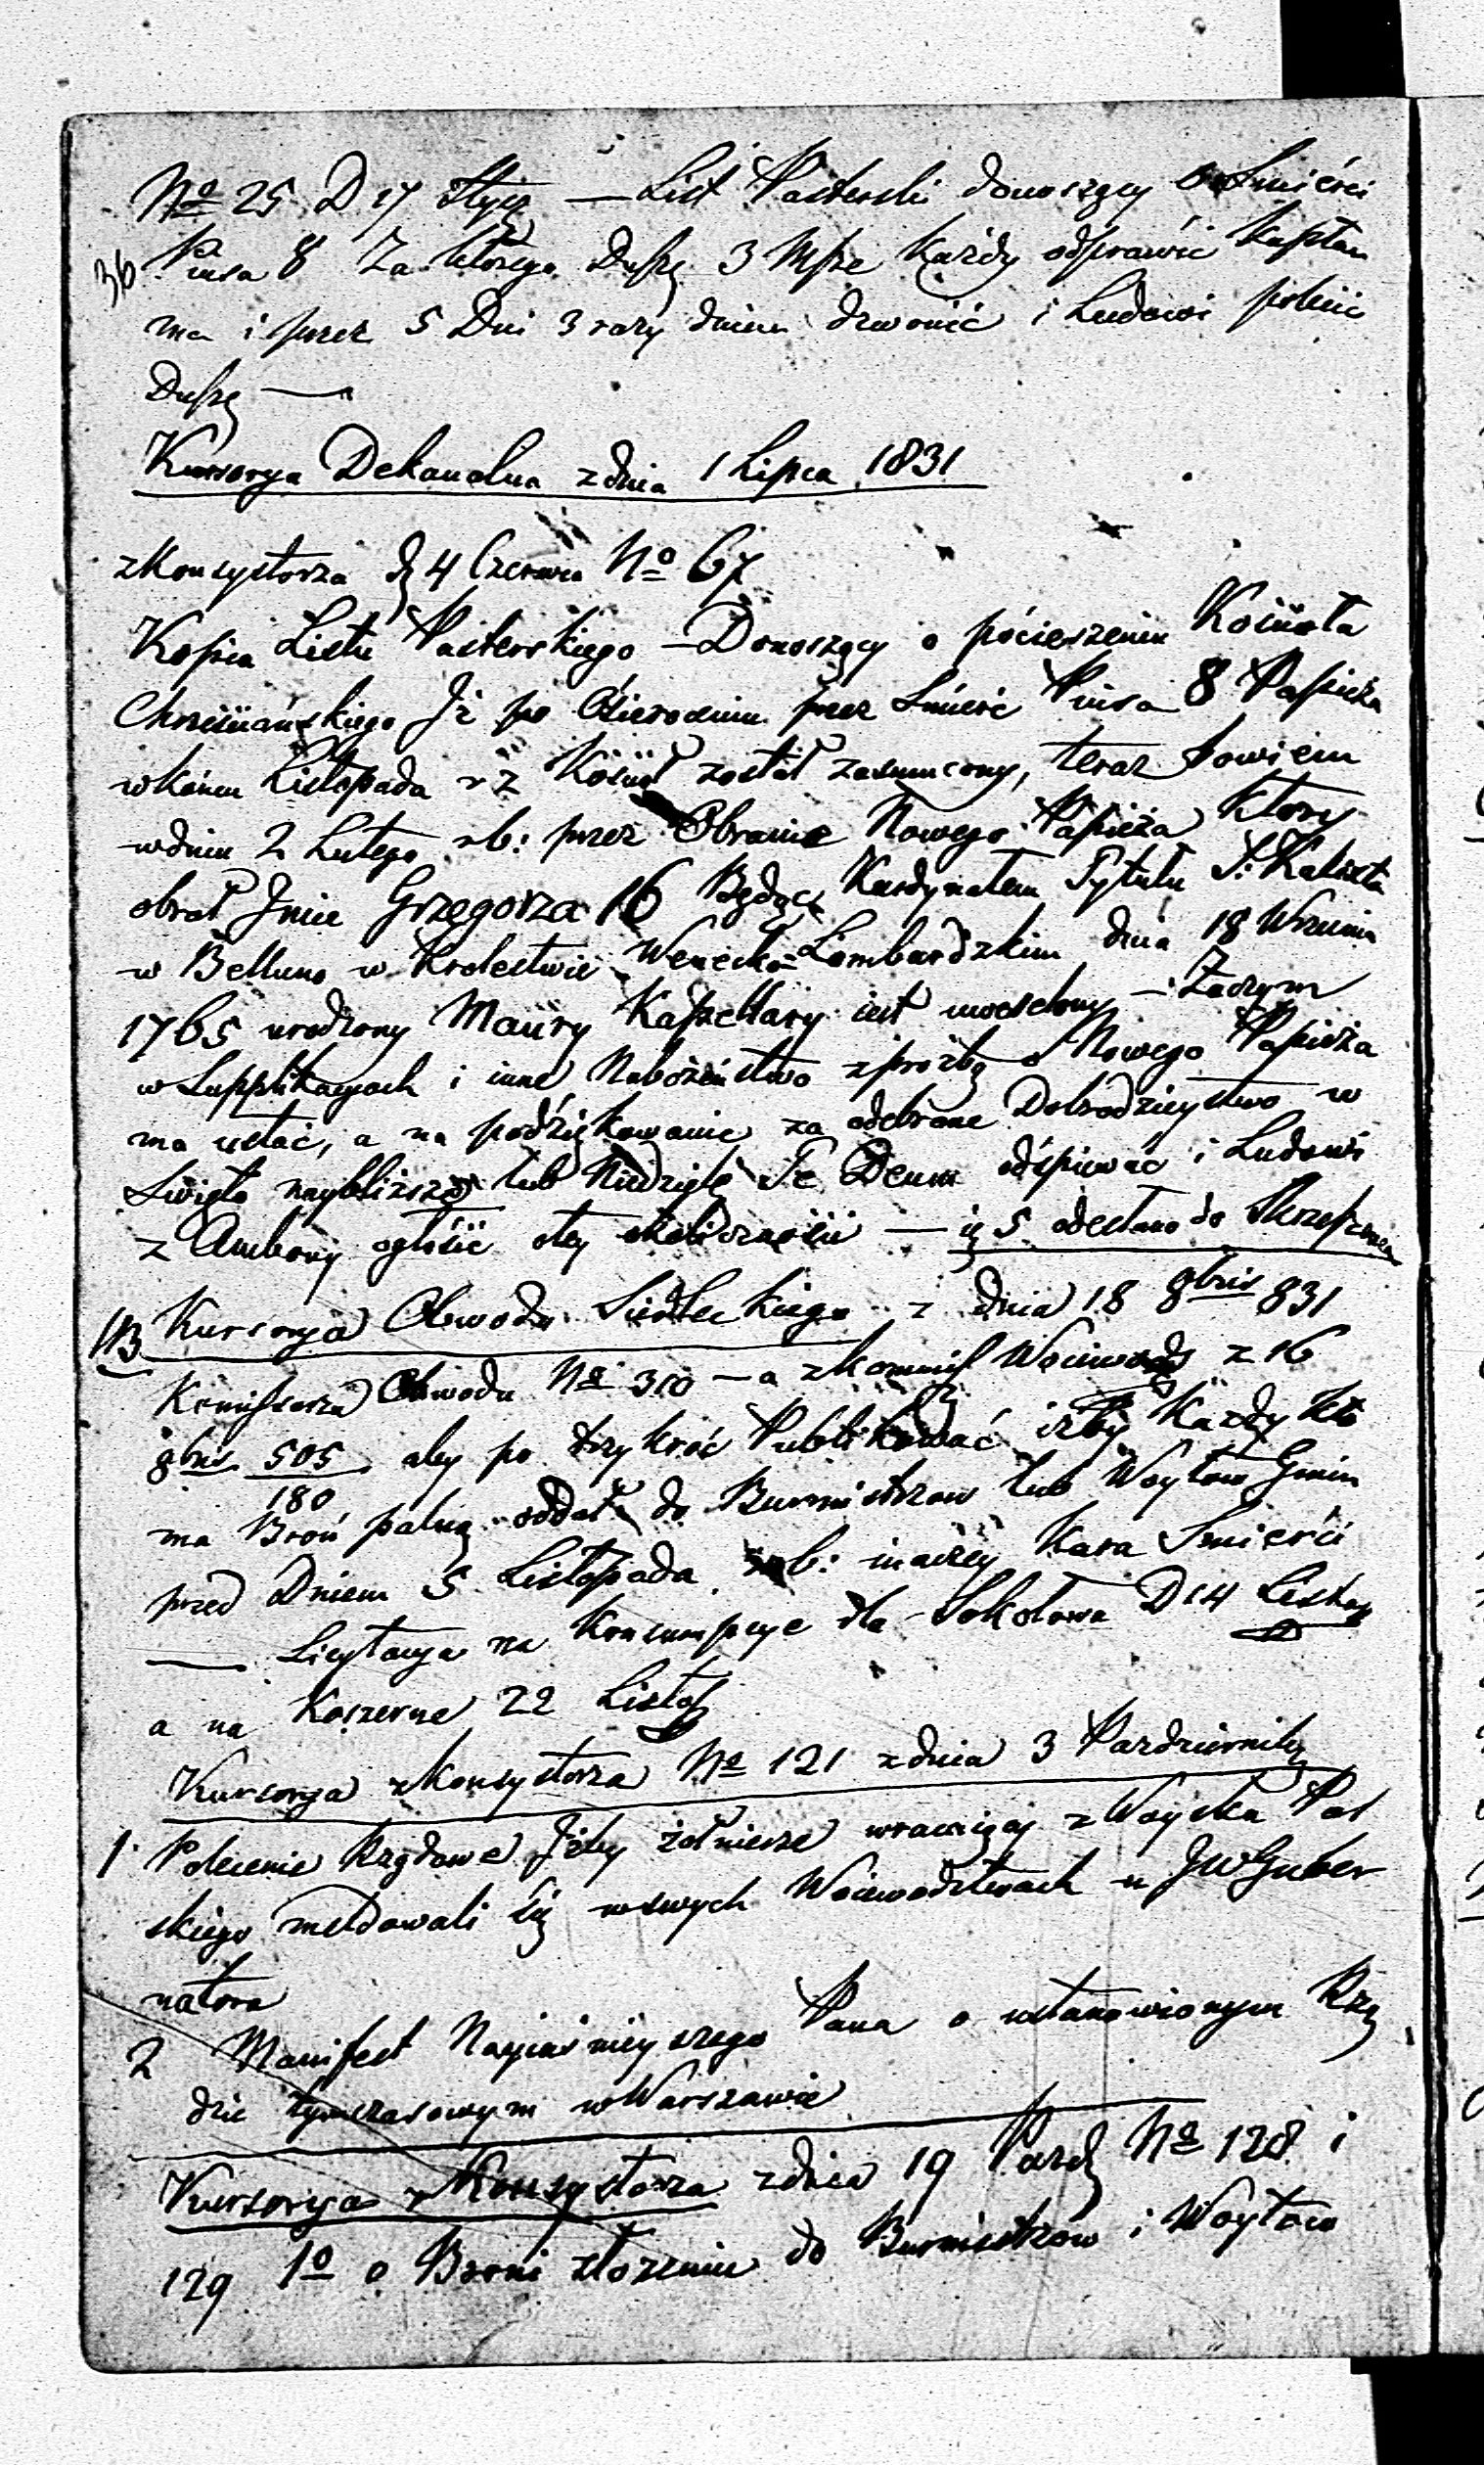 No 25 D 17 Stycz — List Pasterski donoszący o Smierci
36 Piusa 8 Za ktorego Duszę 3 Msze Każdy odprawić Kapłan
ma i przez 5 Dni 3 razy dniem dzwonić i Ludowi polecić
Duszę —
Kursorya Dekanalna z dnia 1 Lipca 1831
z Konsystorza d 4 Czerwca No 67
Kopia Listu Pasterskiego — Donoszący o pócieszeniu Kościoła
Chrześciiańskiego Jż po Osieroceniu przez Śmierć Piusa 8 Papieża
w końcu Listopada r z Kościoł został zasmucony, teraz bowiem
w dniu 2 Lutego r b: przez Obranie Nowego Papieża ktory
obrał Jmie Grzegorza 16 Będąc Kardynałem Tytułu S: Kalixta
w Belluno w Krolestwie Wenecko = Lombardzkim dnia 18 Wrzesnia
1765 urodzony Maury Kapellary iest uweselony — Zaczym
w Supplikacyach i inne Nabożeństwo z prozbą o Nowego Papieża
ma ustać, a na podziękowanie za odebrane Dobrodzieystwo w
Swięto naybliższe lub Niedzielę Te Deum odśpiewać i Ludowi
z Ambony ogłosić otey okoliczności — 5 odesłano do Skrzeszewa
NB Kursorya Obwodu Siedleckiego z dnia 18 8bris 831
Kommissarza Obwodu No 310 — a z kommis Woiewodz z 16
8bris 505 aby po trzykroć Publikować iżby Każdy kto
180
ma Broń palną oddał do Burmistrzow lub Woytow Gmin
przed Dniem 5 Listopada r b: inaczey Kara Smierci
— Licytacya na Konsumpcye dla Sokołowa D 14 Listop
a na Koszerne 22 Listop
Kursorya z Konsystorza No 121 z dnia 3 Pazdziernika
1 Polecenie Rządowe Jżby żołnierze wracaiący z Woyska Pol
skiego meldowali się w swych Woiewodztwach u JWGuber
natora
2 Manifest Nayiaśnieyszego Pana o ustanowionym Rzą
dzie tymczasowym w Warszawie
Kursorya z Konsystorza z dnia 19 Pazdz No 128 i
129 1o o Broni złozeniu do Burmistrzow i Woytow